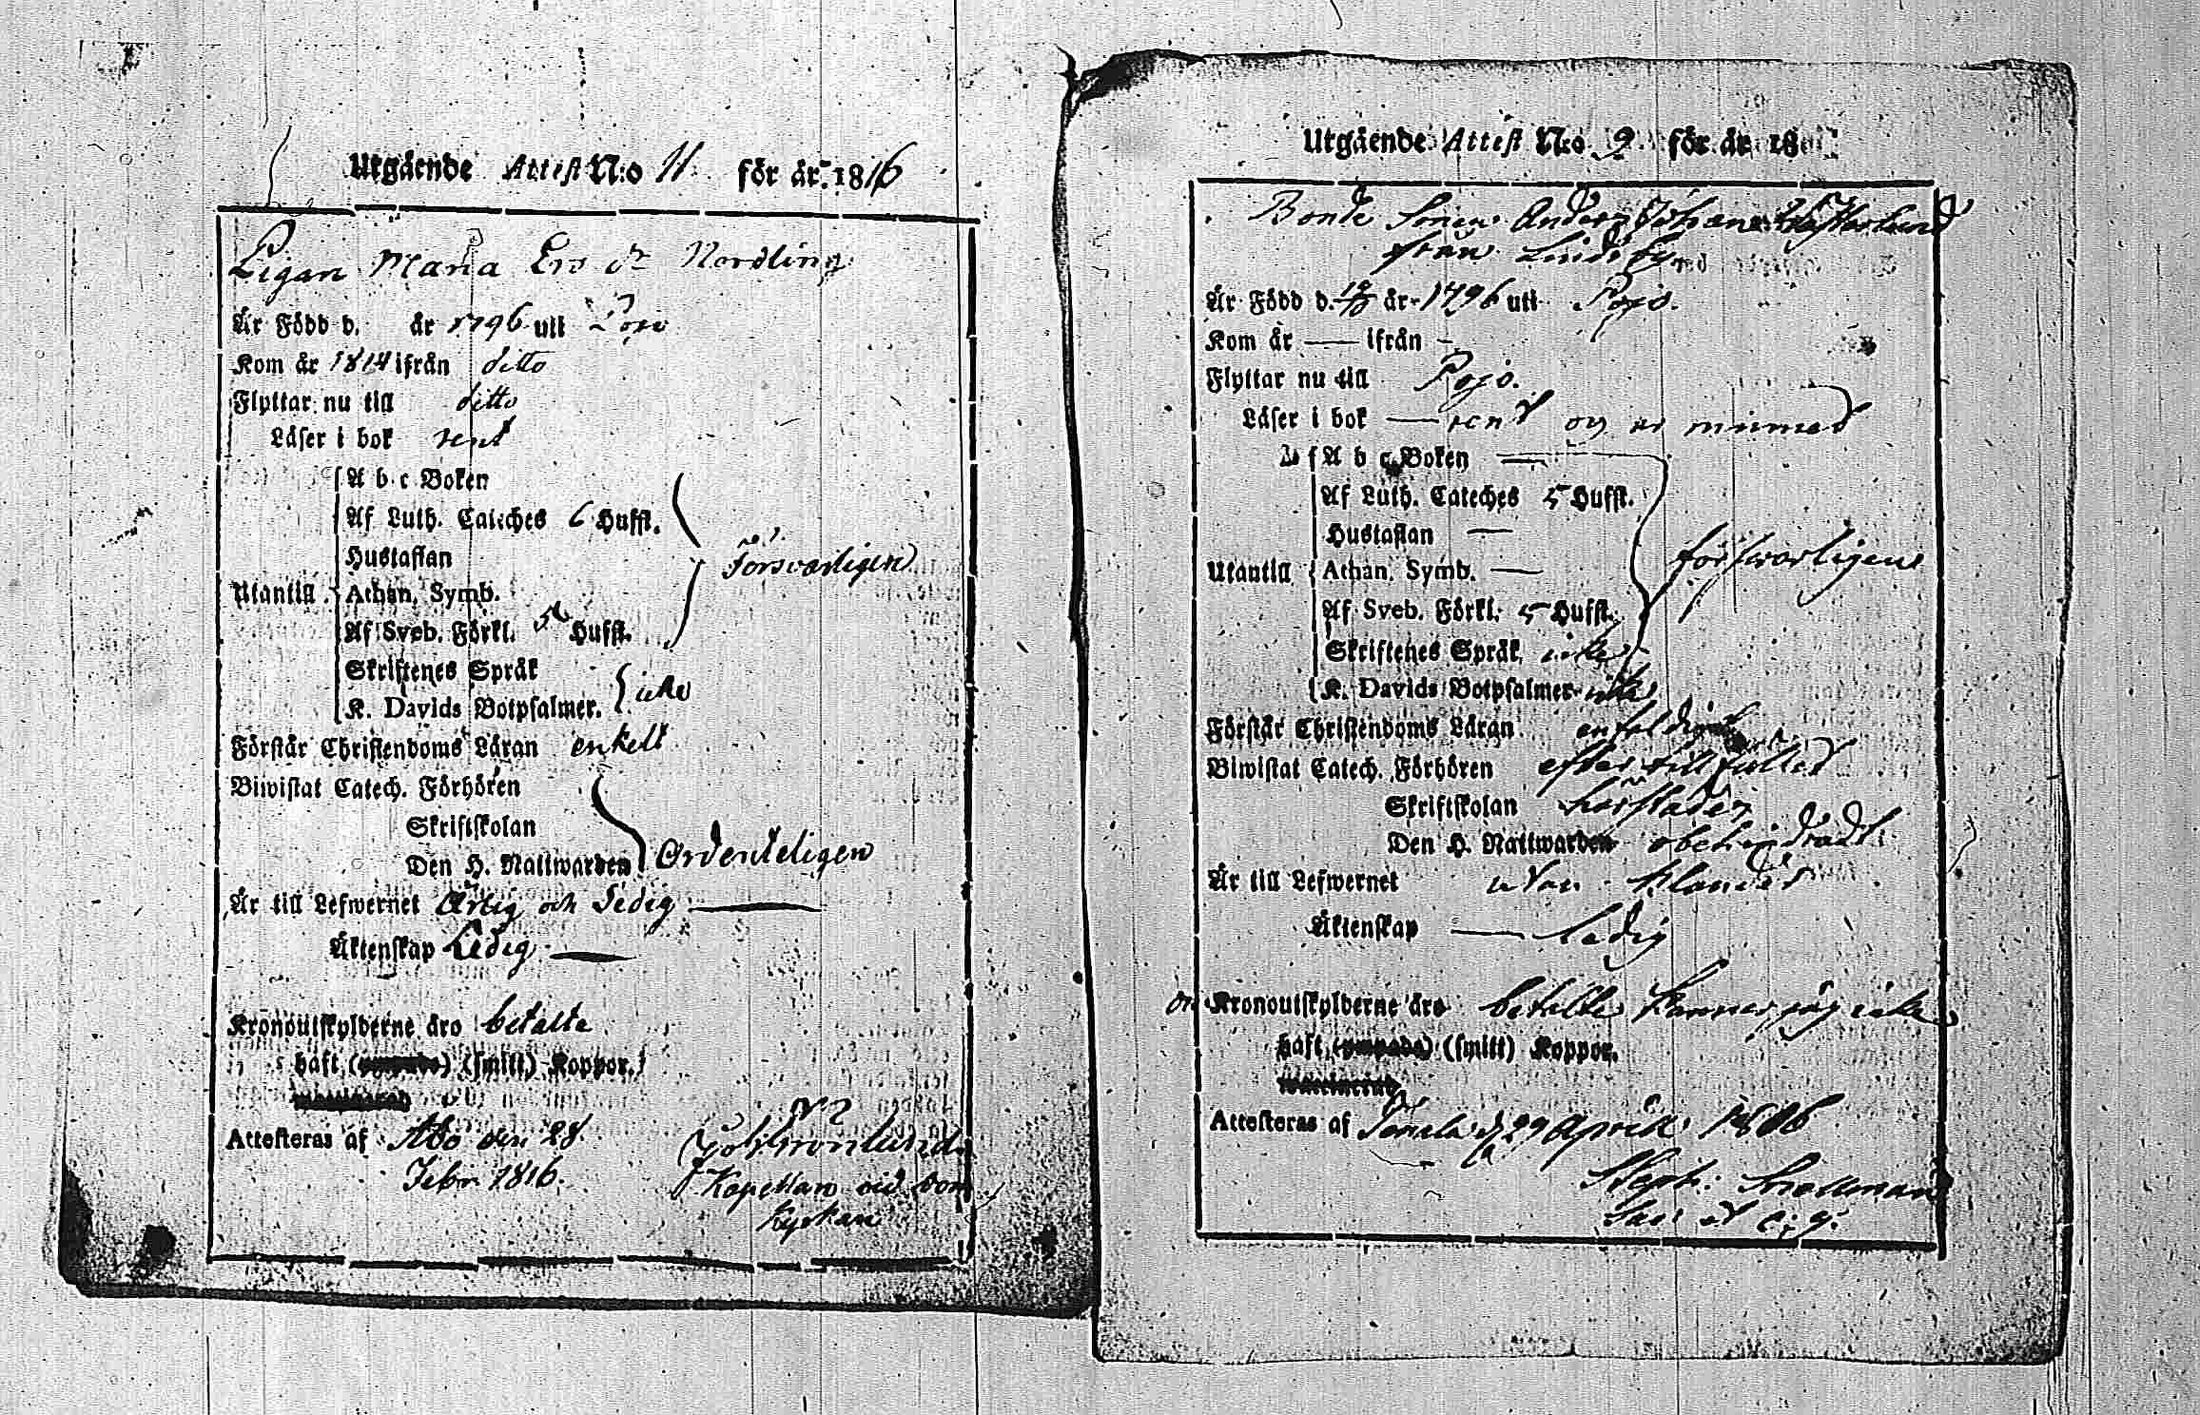 Utgående Attest N:o 11 för år 1816
Pigan Maria Ers dr Nordling
Är Född d. år 1796 uti Pojo
Kom år 1814 ifrån ditto
Flyttar nu till ditto
Läser i bok rent
A b c Boken
Af Luth. Cateches 6 Hufst.
Hustaflan
Försvarligen
Utantill Athan. Symb.
Af Sveb. Förkl. 5 Hufst.
Skriftenes Språk
icke
K. Davids Botpsalmer.
Förstår Christendoms Läran enkelt
Biwistat Catech. Förhören
Skriftskolan
Den H. Nattwarden Ordenteligen
Är till Lefwernet Ärlig och Sedig
Äktenskap Ledig
Kronoutskylderne äro betalte
haft (smitt) Koppor.
Attesteras af Åbo den 28
Febr 1816.
Kapellan vid Dom
Kyrkan
Utgående Attest N:o 9 för år 18
Bonde Sonen Anders Johan Westerlund
från Lindsby
Är Född d. år 1796 uti Pojo.
Kom år — ifrån -
Flyttar nu till Pojo.
Läser i bok — rent og ur minnet
A b c Boken —
Af Luth. Cateches 5 Hufst.
Hustaflan —
försvarligen
Utantill Athan. Symb. —
Af Sveb. Förkl. 5 Hufst.
Skriftenes Språk icke
K. Davids Botpsalmer icke
Förstår Christendoms Läran enfaldigt
Biwistat Catech. Förhören efter tillfället
Skriftskolan
Den H. Nattwarden obehindradt
Är till Lefwernet utan klander
Äktenskap — ledig
om Kronoutskylderne äro betalte känner jag icke
haft (smitt) Koppor.
Attesteras af Tenala d 29 April 1816